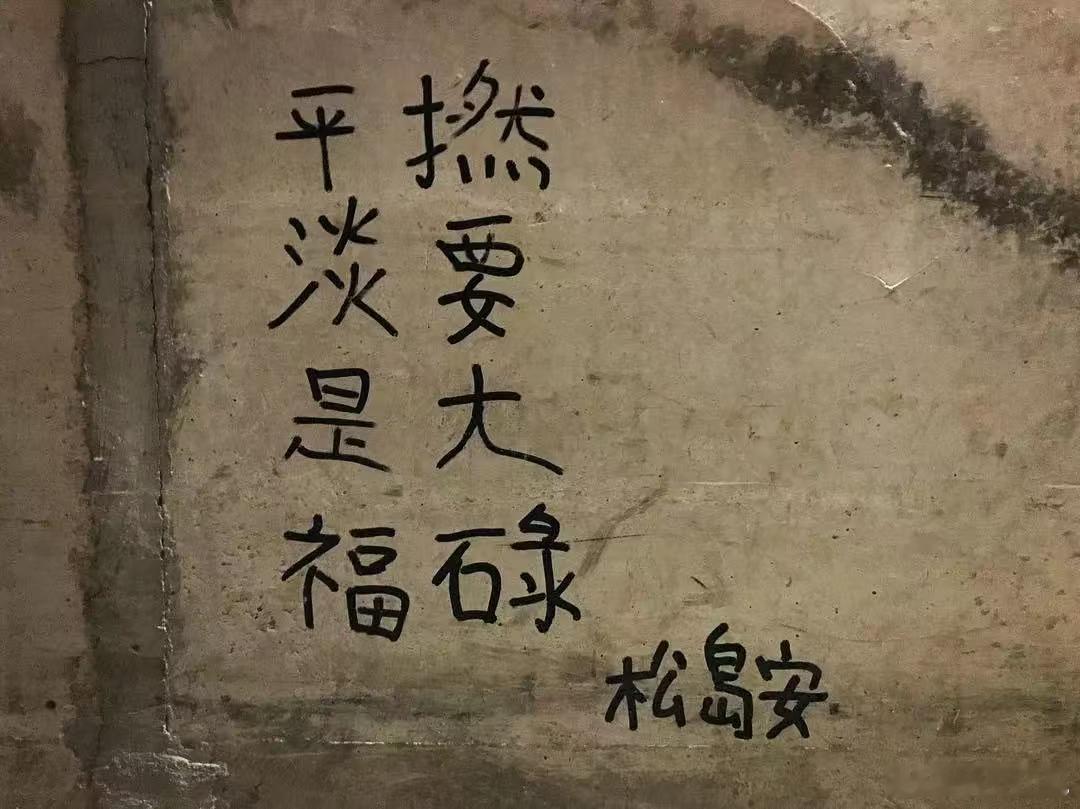 撚要大碌
平淡是福
松島安